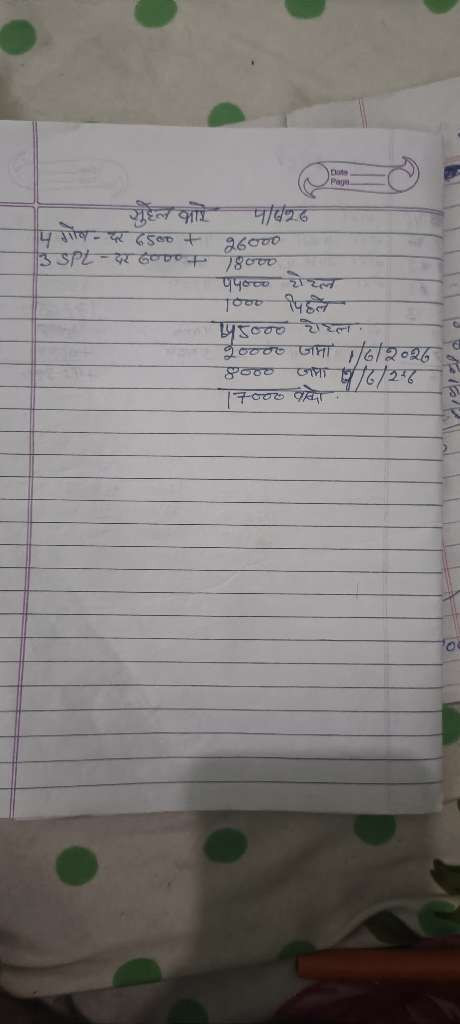 Date
Page
4/6/26
4 गोब - दर 6500 + 26000
3 SPL - दर 6000 + 18000
44000 टोटल
1000
45000 टोटल.
20000 जमा 1/6/2026
8000 जमा
17000 बाकी.